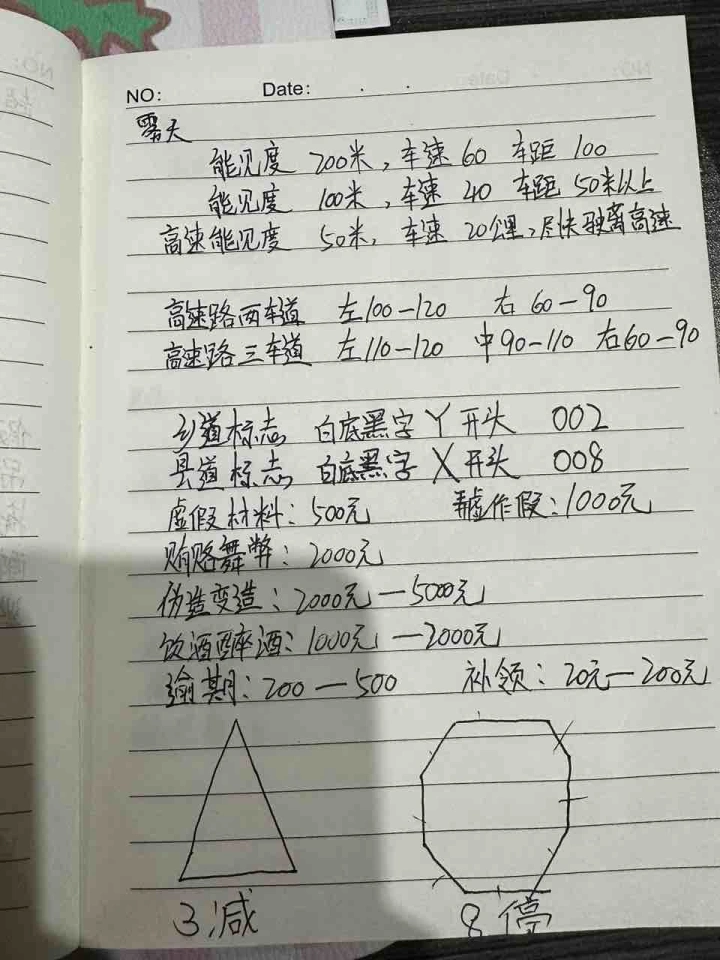 NO: Date: . .
雾天
能见度 200米, 车速 60 车距 100
能见度 100米, 车速 40 车距 50米以上
高速能见度 50米, 车速 20公里, 尽快驶离高速
高速路两车道 左100-120 右 60-90
高速路三车道 左110-120 中90-110 右60-90
乡道标志 白底黑字 Y 开头 002
县道标志 白底黑字 X 开头 008
虚假材料: 500元 作假: 1000元
贿赂舞弊: 2000元
伪造变造: 2000元-5000元
饮酒醉酒: 1000元-2000元
逾期: 200-500 补领: 20元-200元
3减 8停